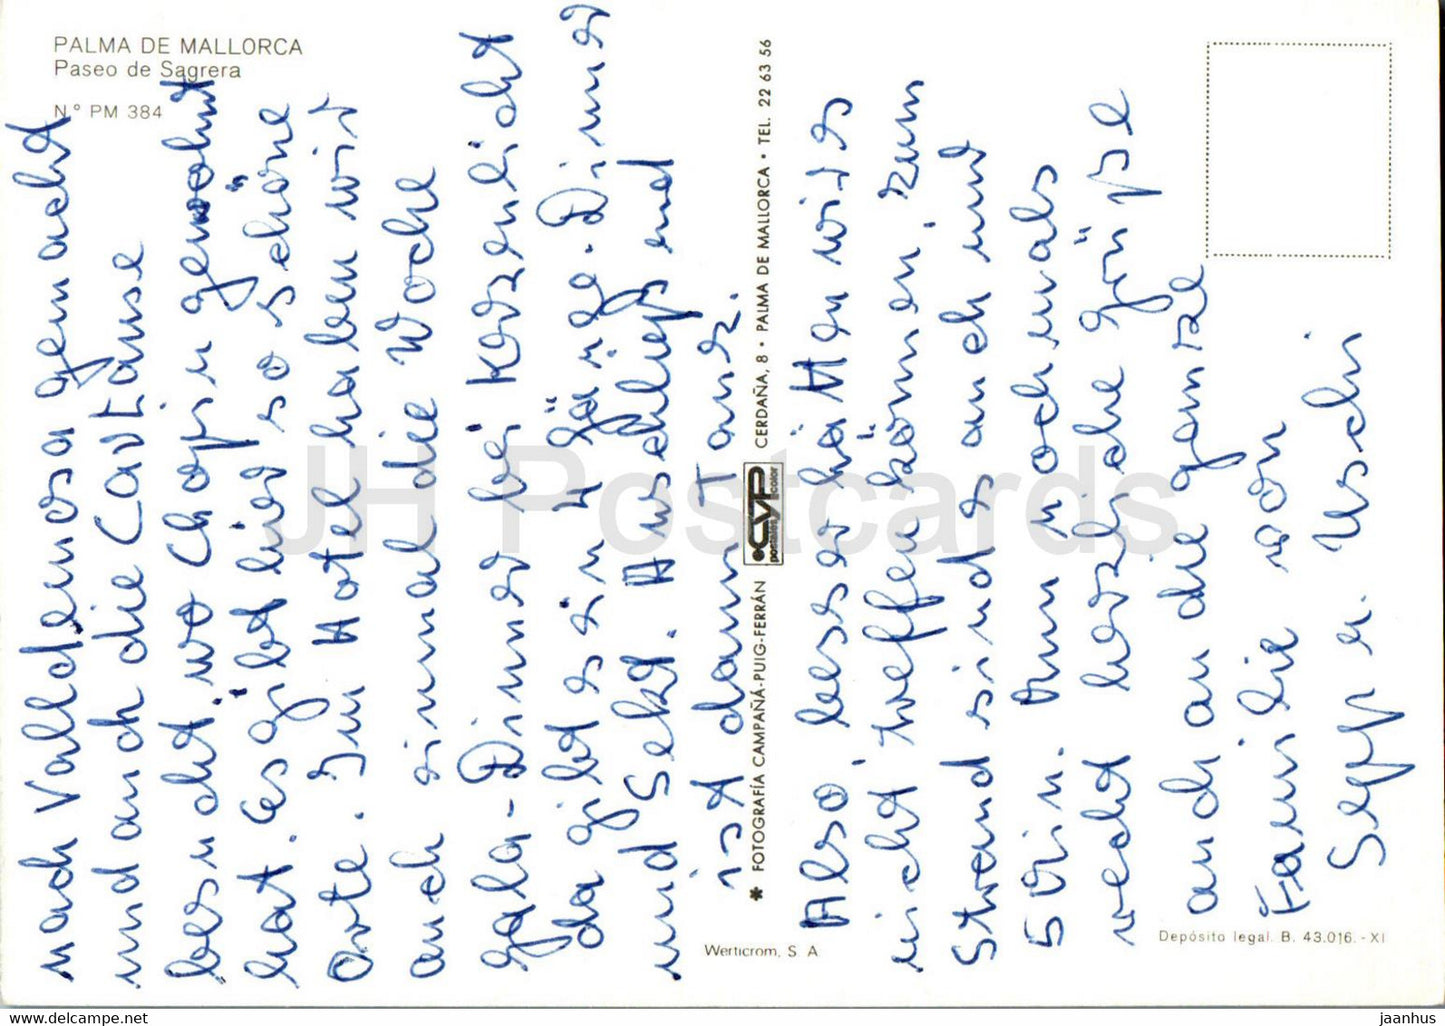 PALMA DE MALLORCA
Paseo de Sagrera
N.º PM 384
nach Valldemosa gemacht
und auch die Cartause
besucht, wo Chopin gewohnt
hat. Es gibt hier so schöne
Orte. Im Hotel haben wir
auch einmal die Woche
Gala-Dinner bei Kerzenlicht
da gibt es in 4 Gänge-Dinner
und Sekt. Ausschlief end
ist dann Tanz.
✱ FOTOGRAFÍA CAMPAÑÁ-PUIG-FERRÁN
CYP
postales color
CERDAÑA, 8 • PALMA DE MALLORCA • TEL. 22 63 56
Also, besser hätten wir es
nicht treffen können, zum
Strand sind es auch nur
5 Min. Nun nochmals
recht herzliche Grüße
auch an die ganze
Familie von
Sepp u. Uschi
Werticrom, S A
Depósito legal. B. 43.016.-XI
JH Postcards
https://jhpostcards.com
jaanhus